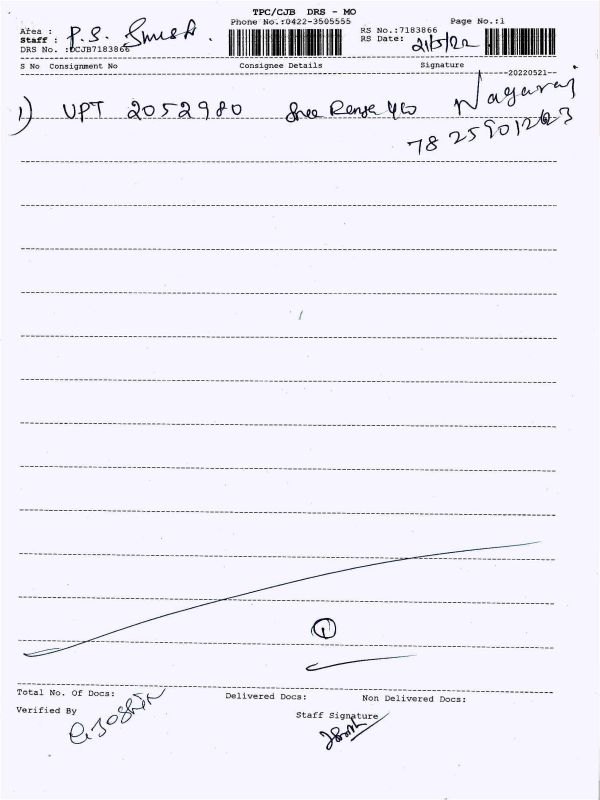 TPC/CJB DRS - MO
Phone No.:0422-3505555 Page No.:1
Area : RS No.:7183866
Staff : P.S. RS Date: 21/5/22
DRS No. :DCJB7183866
S No Consignment No Consignee Details Signature
--20220521--
1) UPT 2052980 Sree Nagaraj
Total No. Of Docs: Delivered Docs: Non Delivered Docs:
Verified By
Staff Signature